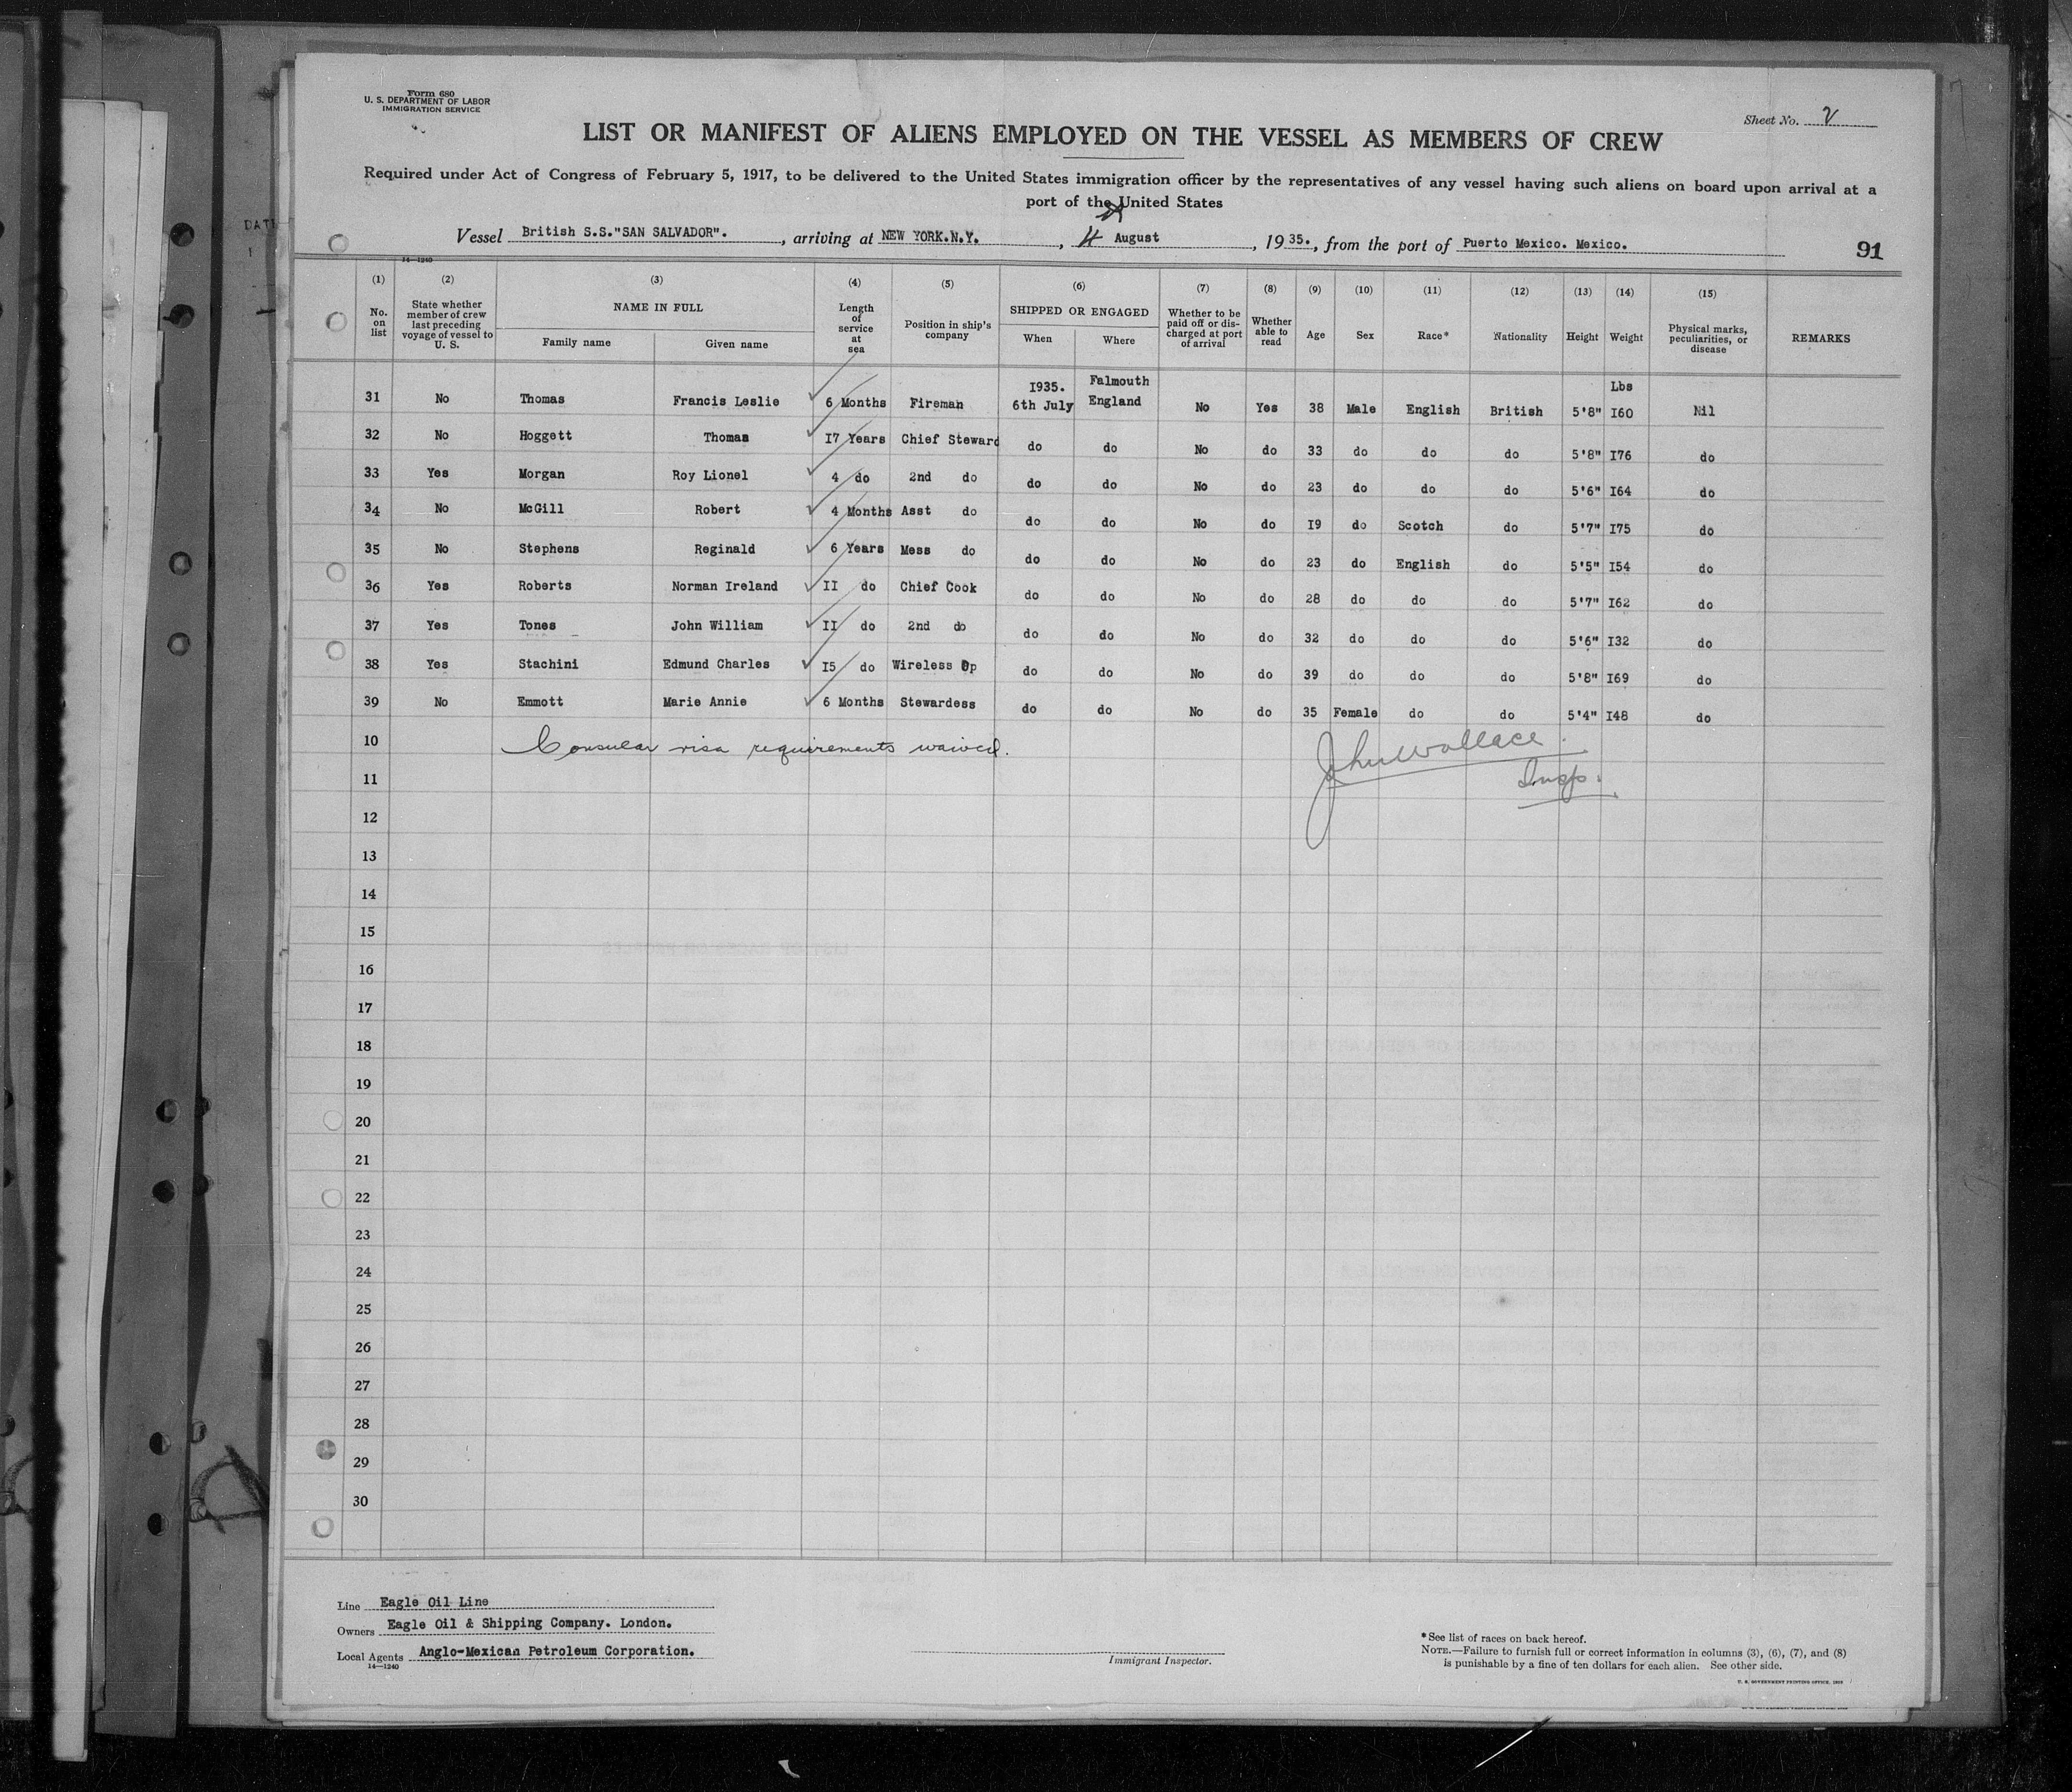 Form 680
U. S. DEPARTMENT OF LABOR
IMMIGRATION SERVICE
Sheet No. 2
LIST OR MANIFEST OF ALIENS EMPLOYED ON THE VESSEL AS MEMBERS OF CREW
Required under Act of Congress of February 5, 1917, to be delivered to the United States immigration officer by the representatives of any vessel having such aliens on board upon arrival at a
port of the United States
Vessel British S.S."SAN SALVADOR"., arriving at NEW YORK.N.Y., 4 August, 1935., from the port of Puerto Mexico. Mexico.
91
14—1240
(1) (2) (3) (4) (5) (6) (7) (8) (9) (10) (11) (12) (13) (14) (15)
No. on list State whether member of crew last preceding voyage of vessel to U. S. NAME IN FULL Family name Given name Length of service at sea Position in ship's company SHIPPED OR ENGAGED When Where Whether to be paid off or discharged at port of arrival Whether able to read Age Sex Race* Nationality Height Weight Physical marks, peculiarities, or disease REMARKS
1935. Falmouth Lbs
31 No Thomas Francis Leslie 6 Months Fireman 6th July England No Yes 38 Male English British 5'8" I60 Nil
32 No Hoggett Thomas I7 Years Chief Steward do do No do 33 do do do 5'8" I76 do
33 Yes Morgan Roy Lionel 4 do 2nd do do do No do 23 do do do 5'6" I64 do
34 No McGill Robert 4 Months Asst do do do No do I9 do Scotch do 5'7" I75 do
35 No Stephens Reginald 6 Years Mess do do do No do 23 do English do 5'5" I54 do
36 Yes Roberts Norman Ireland II do Chief Cook do do No do 28 do do do 5'7" I62 do
37 Yes Tones John William II do 2nd do do do No do 32 do do do 5'6" I32 do
38 Yes Stachini Edmund Charles I5 do Wireless Op do do No do 39 do do do 5'8" I69 do
39 No Emmott Marie Annie 6 Months Stewardess do do No do 35 Female do do 5'4" I48 do
10 Consular visa requirements waived. John Wallace.
11 Insp.
12
13
14
15
16
17
18
19
20
21
22
23
24
25
26
27
28
29
30
Line Eagle Oil Line
Owners Eagle Oil & Shipping Company. London.
Local Agents Anglo-Mexican Petroleum Corporation.
14—1240
Immigrant Inspector.
*See list of races on back hereof.
NOTE.—Failure to furnish full or correct information in columns (3), (6), (7), and (8)
is punishable by a fine of ten dollars for each alien. See other side.
U. S. GOVERNMENT PRINTING OFFICE